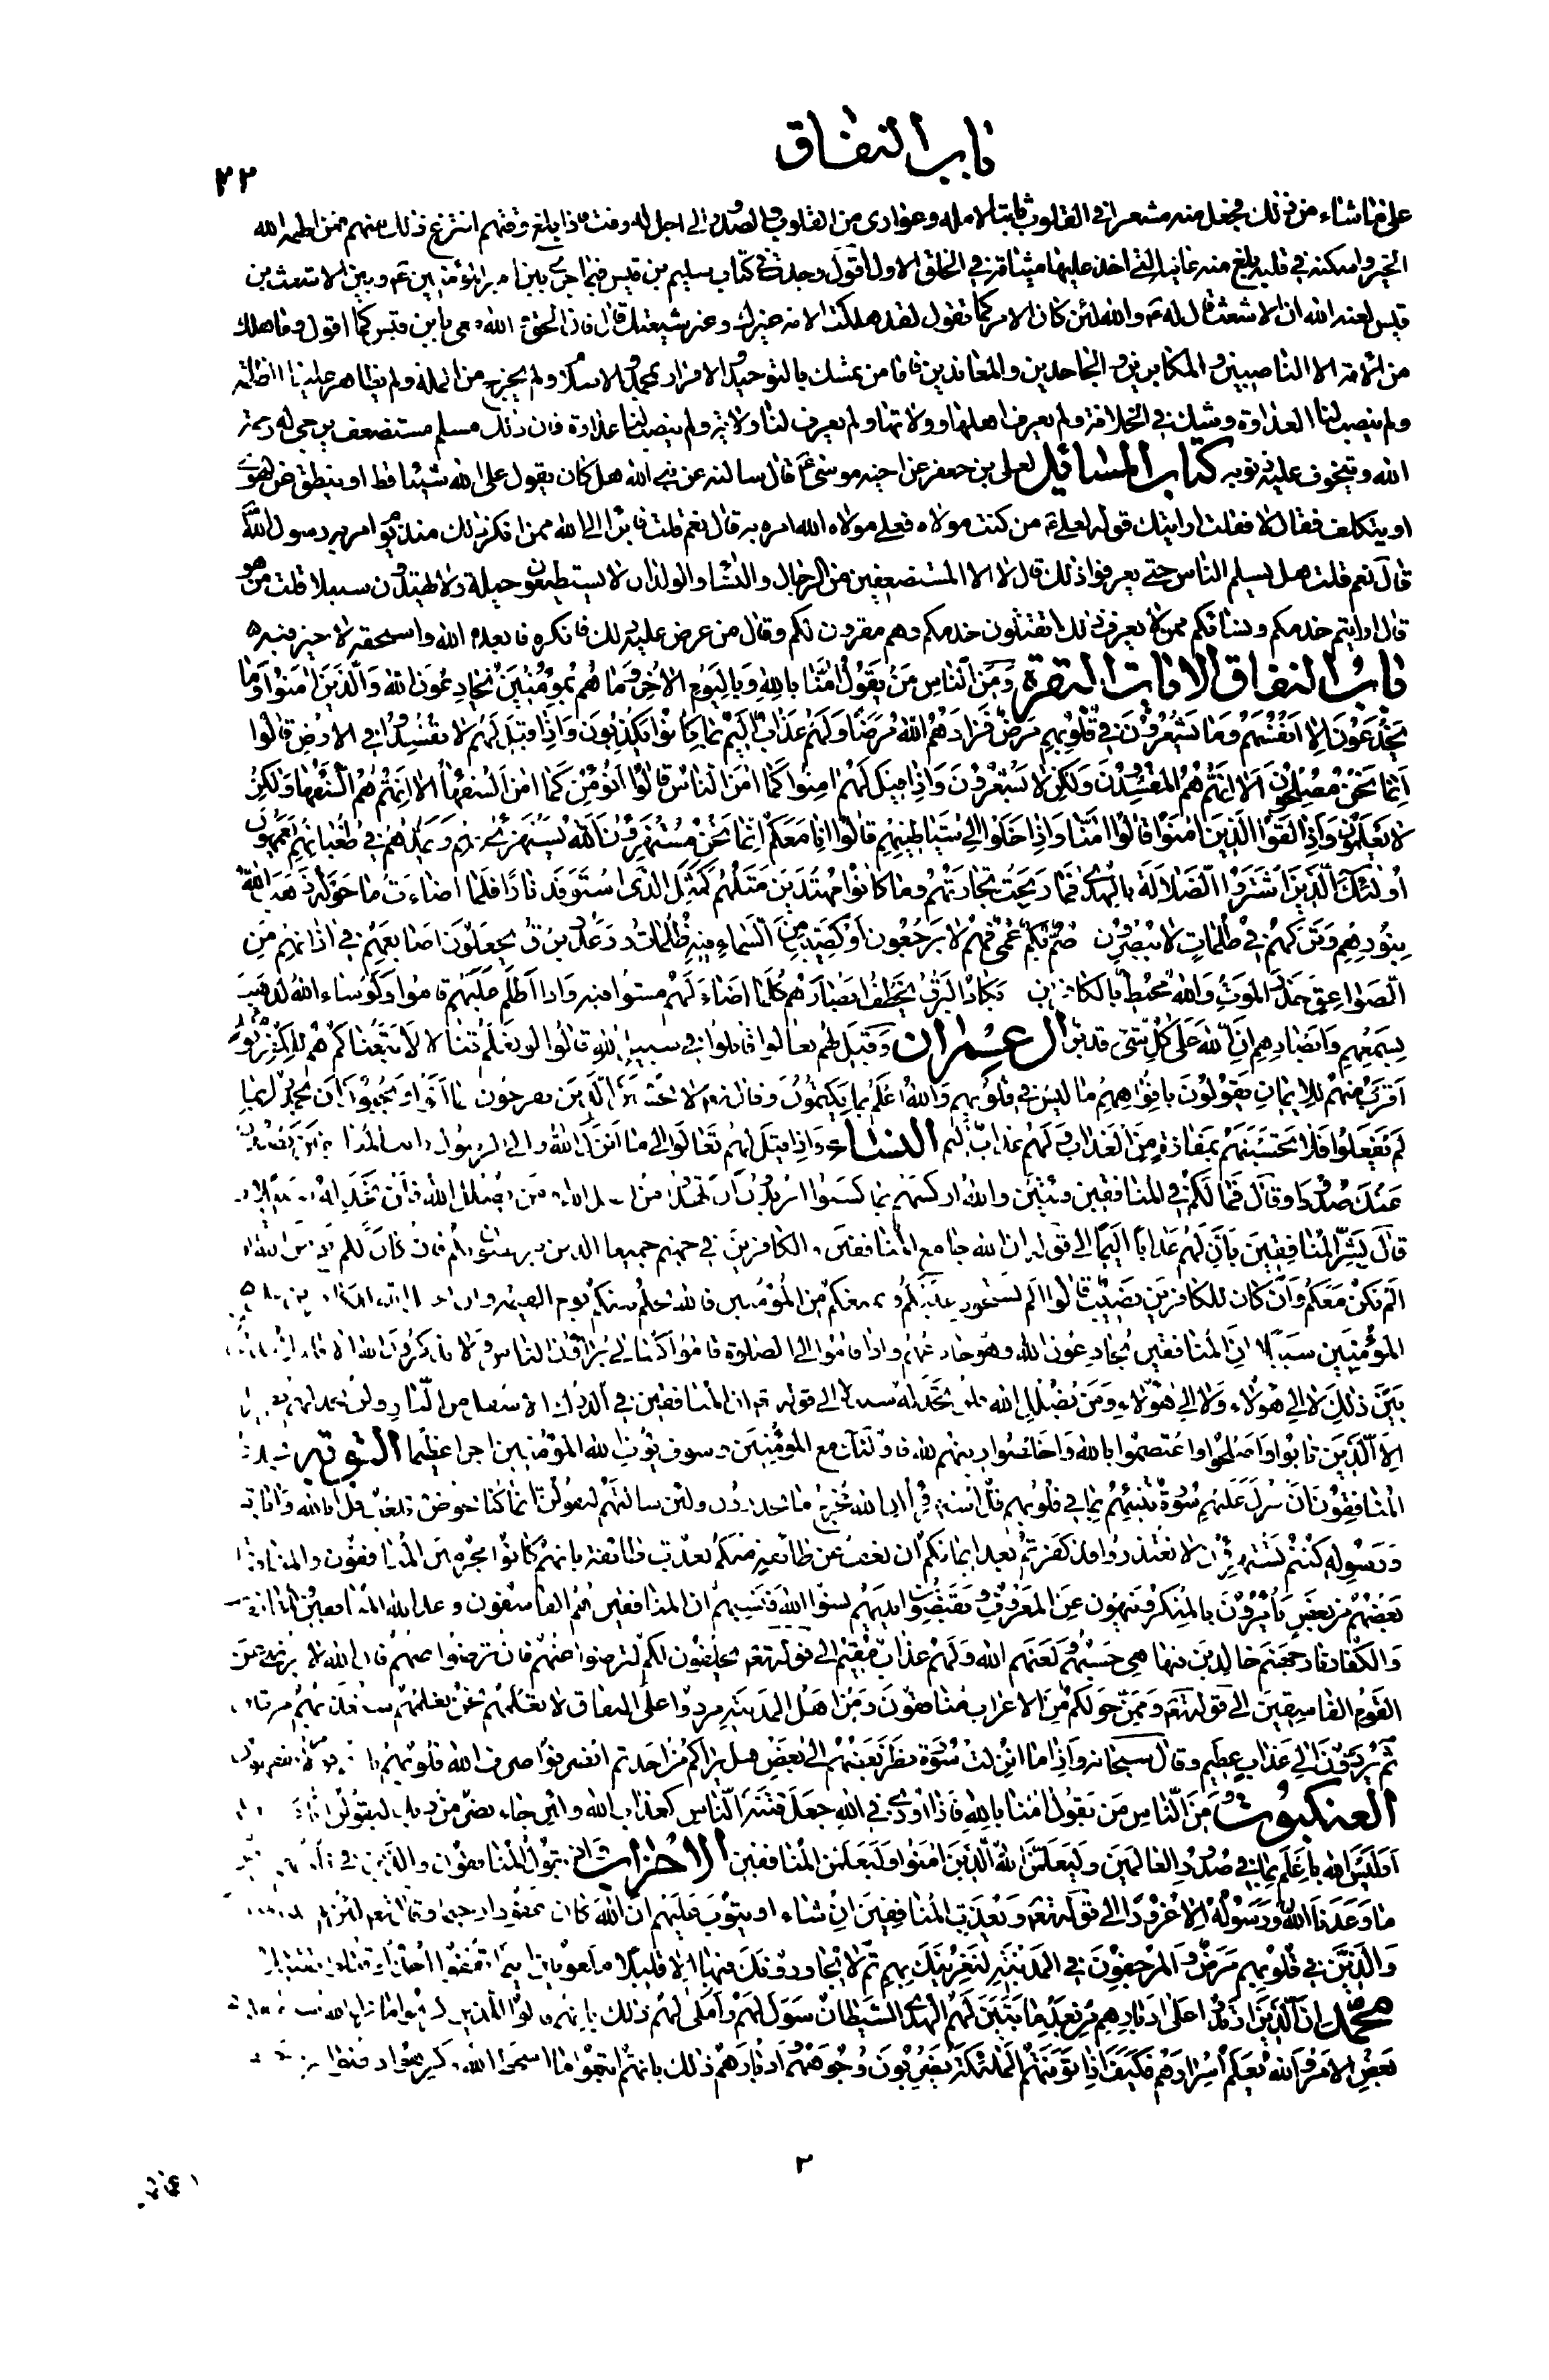 باب النفاق
٢٢
على ما شاء من ذلك فجعل منه مستعرا في القلوب ثابتا لاهله وعوارى من القلوب والصدور الى اجل له وقت فاذا بلغ وقتهم انتزع ذلك منهم فمن الهمه الله
الخير واسكنه في قلبه بلغ منه غايته التي اخذ عليها ميثاقه في الخلق الاول اقول وجدت في كتاب سليم بن قيس فيما جرى بين امير المؤمنين ع وبين الاشعث بن
قيس لعنه الله ان الاشعث قال له ع والله لئن كان الامر كما تقول لقد هلكت الامة غيرك وغير شيعتك قال فان الحق والله معى يا بن قيس كما اقول وما هلك
من الامة الا الناصبين والمكابرين والجاحدين والمعاندين فاما من تمسك بالتوحيد والاقرار بمحمد والاسلام ولم يخرج من الملة ولم يظاهر علينا الظلمة
ولم ينصب لنا العداوة وشك في الخلافة ولم يعرف اهلها وولاتها ولم يعرف لنا ولاية ولم ينصب لنا عداوة فان ذلك مسلم مستضعف يرجى له رحمة
الله ويتخوف عليه ذنوبه كتاب المسائل لعلى بن جعفر عن اخيه موسى ع قال سالته عن نبى الله هل كان يقول على الله شيئا قط او ينطق عن هوى
او يتكلف فقال لا فقلت ارايتك قوله لعلى ع من كنت مولاه فعلى مولاه الله امره به قال نعم قلت فابرأ الى الله ممن انكر ذلك منذ يوم امر به رسول الله
قال نعم قلت هل يسلم الناس حتى يعرفوا ذلك قال لا الا المستضعفين من الرجال والنساء والولدان لا يستطيعون حيلة ولا يهتدون سبيلا قلت من هو
قال ارايتم خدمكم ونسائكم ممن لا يعرف ذلك اتقتلون خدمكم وهم مقرون لكم وقال من عرض عليه ذلك فانكره فابعده الله واسحقه لا خير فيه
باب النفاق الايات البقرة وَمِنَ النَّاسِ مَنْ يَقُولُ امَنَّا بِاللهِ وَبِالْيَوْمِ الاخِرِ وَمَا هُمْ بِمُؤْمِنِينَ يُخَادِعُونَ اللهَ وَالَّذِينَ امَنُوا وَمَا
يَخْدَعُونَ اِلا اَنْفُسَهُمْ وَمَا يَشْعُرُونَ فِي قُلُوبِهِمْ مَرَضٌ فَزَادَهُمُ اللهُ مَرَضًا وَلَهُمْ عَذَابٌ اَلِيمٌ بِمَا كَانُوا يَكْذِبُونَ وَاِذَا قِيلَ لَهُمْ لا تُفْسِدُوا فِي الارْضِ قَالُوا
اِنَّمَا نَحْنُ مُصْلِحُونَ اَلا اِنَّهُمْ هُمُ الْمُفْسِدُونَ وَلَكِنْ لا يَشْعُرُونَ وَاِذَا قِيلَ لَهُمْ امِنُوا كَمَا امَنَ النَّاسُ قَالُوا اَنُؤْمِنُ كَمَا امَنَ السُّفَهَاءُ اَلا اِنَّهُمْ هُمُ السُّفَهَاءُ وَلَكِنْ
لا يَعْلَمُونَ وَاِذَا لَقُوا الَّذِينَ امَنُوا قَالُوا امَنَّا وَاِذَا خَلَوْا اِلَى شَيَاطِينِهِمْ قَالُوا اِنَّا مَعَكُمْ اِنَّمَا نَحْنُ مُسْتَهْزِؤُنَ اللهُ يَسْتَهْزِئُ بِهِمْ وَيَمُدُّهُمْ فِي طُغْيَانِهِمْ يَعْمَهُونَ
اُولَئِكَ الَّذِينَ اشْتَرَوُا الضَّلالَةَ بِالْهُدَى فَمَا رَبِحَتْ تِجَارَتُهُمْ وَمَا كَانُوا مُهْتَدِينَ مَثَلُهُمْ كَمَثَلِ الَّذِي اسْتَوْقَدَ نَارًا فَلَمَّا اَضَاءَتْ مَا حَوْلَهُ ذَهَبَ اللهُ
بِنُورِهِمْ وَتَرَكَهُمْ فِي ظُلُمَاتٍ لا يُبْصِرُونَ صُمٌّ بُكْمٌ عُمْيٌ فَهُمْ لا يَرْجِعُونَ اَوْ كَصَيِّبٍ مِنَ السَّمَاءِ فِيهِ ظُلُمَاتٌ وَرَعْدٌ وَبَرْقٌ يَجْعَلُونَ اَصَابِعَهُمْ فِي اذَانِهِمْ مِنَ
الصَّوَاعِقِ حَذَرَ الْمَوْتِ وَاللهُ مُحِيطٌ بِالْكَافِرِينَ يَكَادُ الْبَرْقُ يَخْطَفُ اَبْصَارَهُمْ كُلَّمَا اَضَاءَ لَهُمْ مَشَوْا فِيهِ وَاِذَا اَظْلَمَ عَلَيْهِمْ قَامُوا وَلَوْ شَاءَ اللهُ لَذَهَبَ
بِسَمْعِهِمْ وَاَبْصَارِهِمْ اِنَّ اللهَ عَلَى كُلِّ شَيْءٍ قَدِيرٌ ال عمران وَقِيلَ لَهُمْ تَعَالَوْا قَاتِلُوا فِي سَبِيلِ اللهِ قَالُوا لَوْ نَعْلَمُ قِتَالا لاتَّبَعْنَاكُمْ هُمْ لِلْكُفْرِ يَوْمَئِذٍ
اَقْرَبُ مِنْهُمْ لِلايمَانِ يَقُولُونَ بِاَفْوَاهِهِمْ مَا لَيْسَ فِي قُلُوبِهِمْ وَاللهُ اَعْلَمُ بِمَا يَكْتُمُونَ وقال لا تَحْسَبَنَّ الَّذِينَ يَفْرَحُونَ بِمَا اَتَوْا وَيُحِبُّونَ اَنْ يُحْمَدُوا بِمَا
لَمْ يَفْعَلُوا فَلا تَحْسَبَنَّهُمْ بِمَفَازَةٍ مِنَ الْعَذَابِ وَلَهُمْ عَذَابٌ اَلِيمٌ النساء وَاِذَا قِيلَ لَهُمْ تَعَالَوْا اِلَى مَا اَنْزَلَ اللهُ وَاِلَى الرَّسُولِ
عَنْكَ صُدُودًا وقال فَمَا لَكُمْ فِي الْمُنَافِقِينَ فِئَتَيْنِ وَاللهُ اَرْكَسَهُمْ بِمَا كَسَبُوا اَتُرِيدُونَ اَنْ تَهْدُوا مَنْ
قال بَشِّرِ الْمُنَافِقِينَ بِاَنَّ لَهُمْ عَذَابًا اَلِيمًا الى قوله ان الله جامع المنافقين والكافرين في جهنم جميعا الذين يتربصون بكم فان كان لكم
اَلَمْ نَكُنْ مَعَكُمْ وَاِنْ كَانَ لِلْكَافِرِينَ نَصِيبٌ قَالُوا اَلَمْ نَسْتَحْوِذْ عَلَيْكُمْ وَنَمْنَعْكُمْ مِنَ الْمُؤْمِنِينَ فالله يحكم بينكم يوم القيمة
الْمُؤْمِنِينَ سَبِيلا اِنَّ الْمُنَافِقِينَ يُخَادِعُونَ اللهَ وَهُوَ خَادِعُهُمْ وَاِذَا قَامُوا اِلَى الصَّلوةِ قَامُوا كُسَالَى يُرَاؤُنَ النَّاسَ وَلا يَذْكُرُونَ اللهَ اِلا
بَيْنَ ذَلِكَ لا اِلَى هَؤُلاءِ وَلا اِلَى هَؤُلاءِ وَمَنْ يُضْلِلِ اللهُ فَلَنْ تَجِدَ لَهُ سَبِيلا الى قوله ان المنافقين في الدرك الاسفل من النار ولن تجد لهم
اِلا الَّذِينَ تَابُوا وَاَصْلَحُوا وَاعْتَصَمُوا بِاللهِ وَاَخْلَصُوا دِينَهُمْ لِلهِ فَاُولَئِكَ مَعَ الْمُؤْمِنِينَ وسوف يؤت الله المؤمنين اجرا عظيما التوبة
الْمُنَافِقُونَ اَنْ تُنَزَّلَ عَلَيْهِمْ سُورَةٌ تُنَبِّئُهُمْ بِمَا فِي قُلُوبِهِمْ قُلِ اسْتَهْزِؤُا اِنَّ اللهَ مُخْرِجٌ مَا تَحْذَرُونَ ولئن سالتهم ليقولن انما كنا نخوض ونلعب قل ابالله واياته
وَرَسُولِهِ كُنْتُمْ تَسْتَهْزِؤُنَ لا تَعْتَذِرُوا قَدْ كَفَرْتُمْ بَعْدَ اِيمَانِكُمْ اِنْ نَعْفُ عَنْ طَائِفَةٍ مِنْكُمْ نُعَذِّبْ طَائِفَةً بِاَنَّهُمْ كَانُوا مُجْرِمِينَ الْمُنَافِقُونَ وَالْمُنَافِقَاتُ
بَعْضُهُمْ مِنْ بَعْضٍ يَاْمُرُونَ بِالْمُنْكَرِ وَيَنْهَوْنَ عَنِ الْمَعْرُوفِ وَيَقْبِضُونَ اَيْدِيَهُمْ نَسُوا اللهَ فَنَسِيَهُمْ اِنَّ الْمُنَافِقِينَ هُمُ الْفَاسِقُونَ وعد الله المنافقين والمنافقات
وَالْكُفَّارَ نَارَ جَهَنَّمَ خَالِدِينَ فِيهَا هِيَ حَسْبُهُمْ وَلَعَنَهُمُ اللهُ وَلَهُمْ عَذَابٌ مُقِيمٌ الى قوله تعالى يحلفون لكم لترضوا عنهم فان ترضوا عنهم فان الله لا يرضى عن
الْقَوْمِ الْفَاسِقِينَ الى قوله تعالى وَمِمَّنْ حَوْلَكُمْ مِنَ الاعْرَابِ مُنَافِقُونَ وَمِنْ اَهْلِ الْمَدِينَةِ مَرَدُوا عَلَى النِّفَاقِ لا تَعْلَمُهُمْ نَحْنُ نَعْلَمُهُمْ سنعذبهم مرتين
ثُمَّ يُرَدُّونَ اِلَى عَذَابٍ عَظِيمٍ وقال سبحانه وَاِذَا مَا اُنْزِلَتْ سُورَةٌ نَظَرَ بَعْضُهُمْ اِلَى بَعْضٍ هَلْ يَرَاكُمْ مِنْ اَحَدٍ ثُمَّ انْصَرَفُوا صَرَفَ اللهُ قُلُوبَهُمْ
العنكبوت وَمِنَ النَّاسِ مَنْ يَقُولُ امَنَّا بِاللهِ فَاِذَا اُوذِيَ فِي اللهِ جَعَلَ فِتْنَةَ النَّاسِ كَعَذَابِ اللهِ وَلَئِنْ جَاءَ نَصْرٌ مِنْ رَبِّكَ لَيَقُولُنَّ
اَوَلَيْسَ اللهُ بِاَعْلَمَ بِمَا فِي صُدُورِ الْعَالَمِينَ وَلَيَعْلَمَنَّ اللهُ الَّذِينَ امَنُوا وَلَيَعْلَمَنَّ الْمُنَافِقِينَ الاحزاب وَاِذْ يَقُولُ الْمُنَافِقُونَ وَالَّذِينَ فِي
مَا وَعَدَنَا اللهُ وَرَسُولُهُ اِلا غُرُورًا الى قوله تعالى وَيُعَذِّبَ الْمُنَافِقِينَ اِنْ شَاءَ اَوْ يَتُوبَ عَلَيْهِمْ اِنَّ اللهَ كَانَ غَفُورًا رَحِيمًا وقال تعالى
وَالَّذِينَ فِي قُلُوبِهِمْ مَرَضٌ وَالْمُرْجِفُونَ فِي الْمَدِينَةِ لَنُغْرِيَنَّكَ بِهِمْ ثُمَّ لا يُجَاوِرُونَكَ فِيهَا اِلا قَلِيلا مَلْعُونِينَ
محمد اِنَّ الَّذِينَ ارْتَدُّوا عَلَى اَدْبَارِهِمْ مِنْ بَعْدِ مَا تَبَيَّنَ لَهُمُ الْهُدَى الشَّيْطَانُ سَوَّلَ لَهُمْ وَاَمْلَى لَهُمْ ذَلِكَ بِاَنَّهُمْ قَالُوا لِلَّذِينَ كَرِهُوا مَا نَزَّلَ اللهُ
بَعْضِ الامْرِ وَاللهُ يَعْلَمُ اِسْرَارَهُمْ فَكَيْفَ اِذَا تَوَفَّتْهُمُ الْمَلئِكَةُ يَضْرِبُونَ وُجُوهَهُمْ وَاَدْبَارَهُمْ ذَلِكَ بِاَنَّهُمُ اتَّبَعُوا مَا اَسْخَطَ اللهَ وكرهوا رضوانه
٣